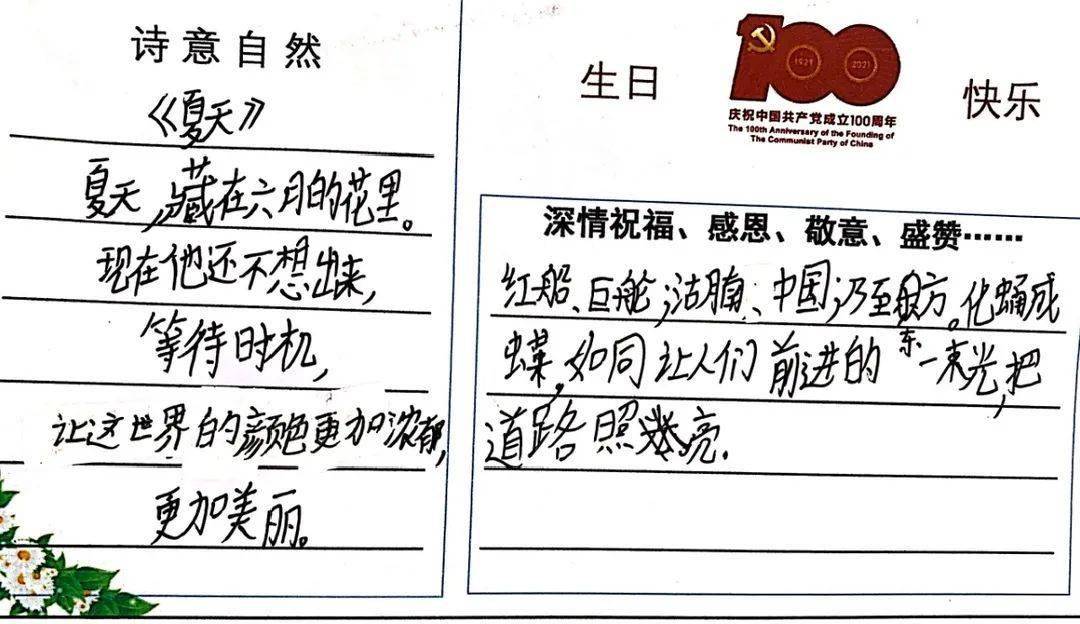 诗意自然
《夏天》
夏天,藏在六月的花里。
现在他还不想出来,
等待时机,
让这世界的颜色更加浓郁,
更加美丽。
生日
100
1921
2021
庆祝中国共产党成立100周年
The 100th Anniversary of the Founding of
The Communist Party of China
快乐
深情祝福、感恩、敬意、盛赞……
红船、巨舵;沽腩、中国;乃至东方。化蛹成
蝶,如同让人们前进的一束光,把
道路照亮.